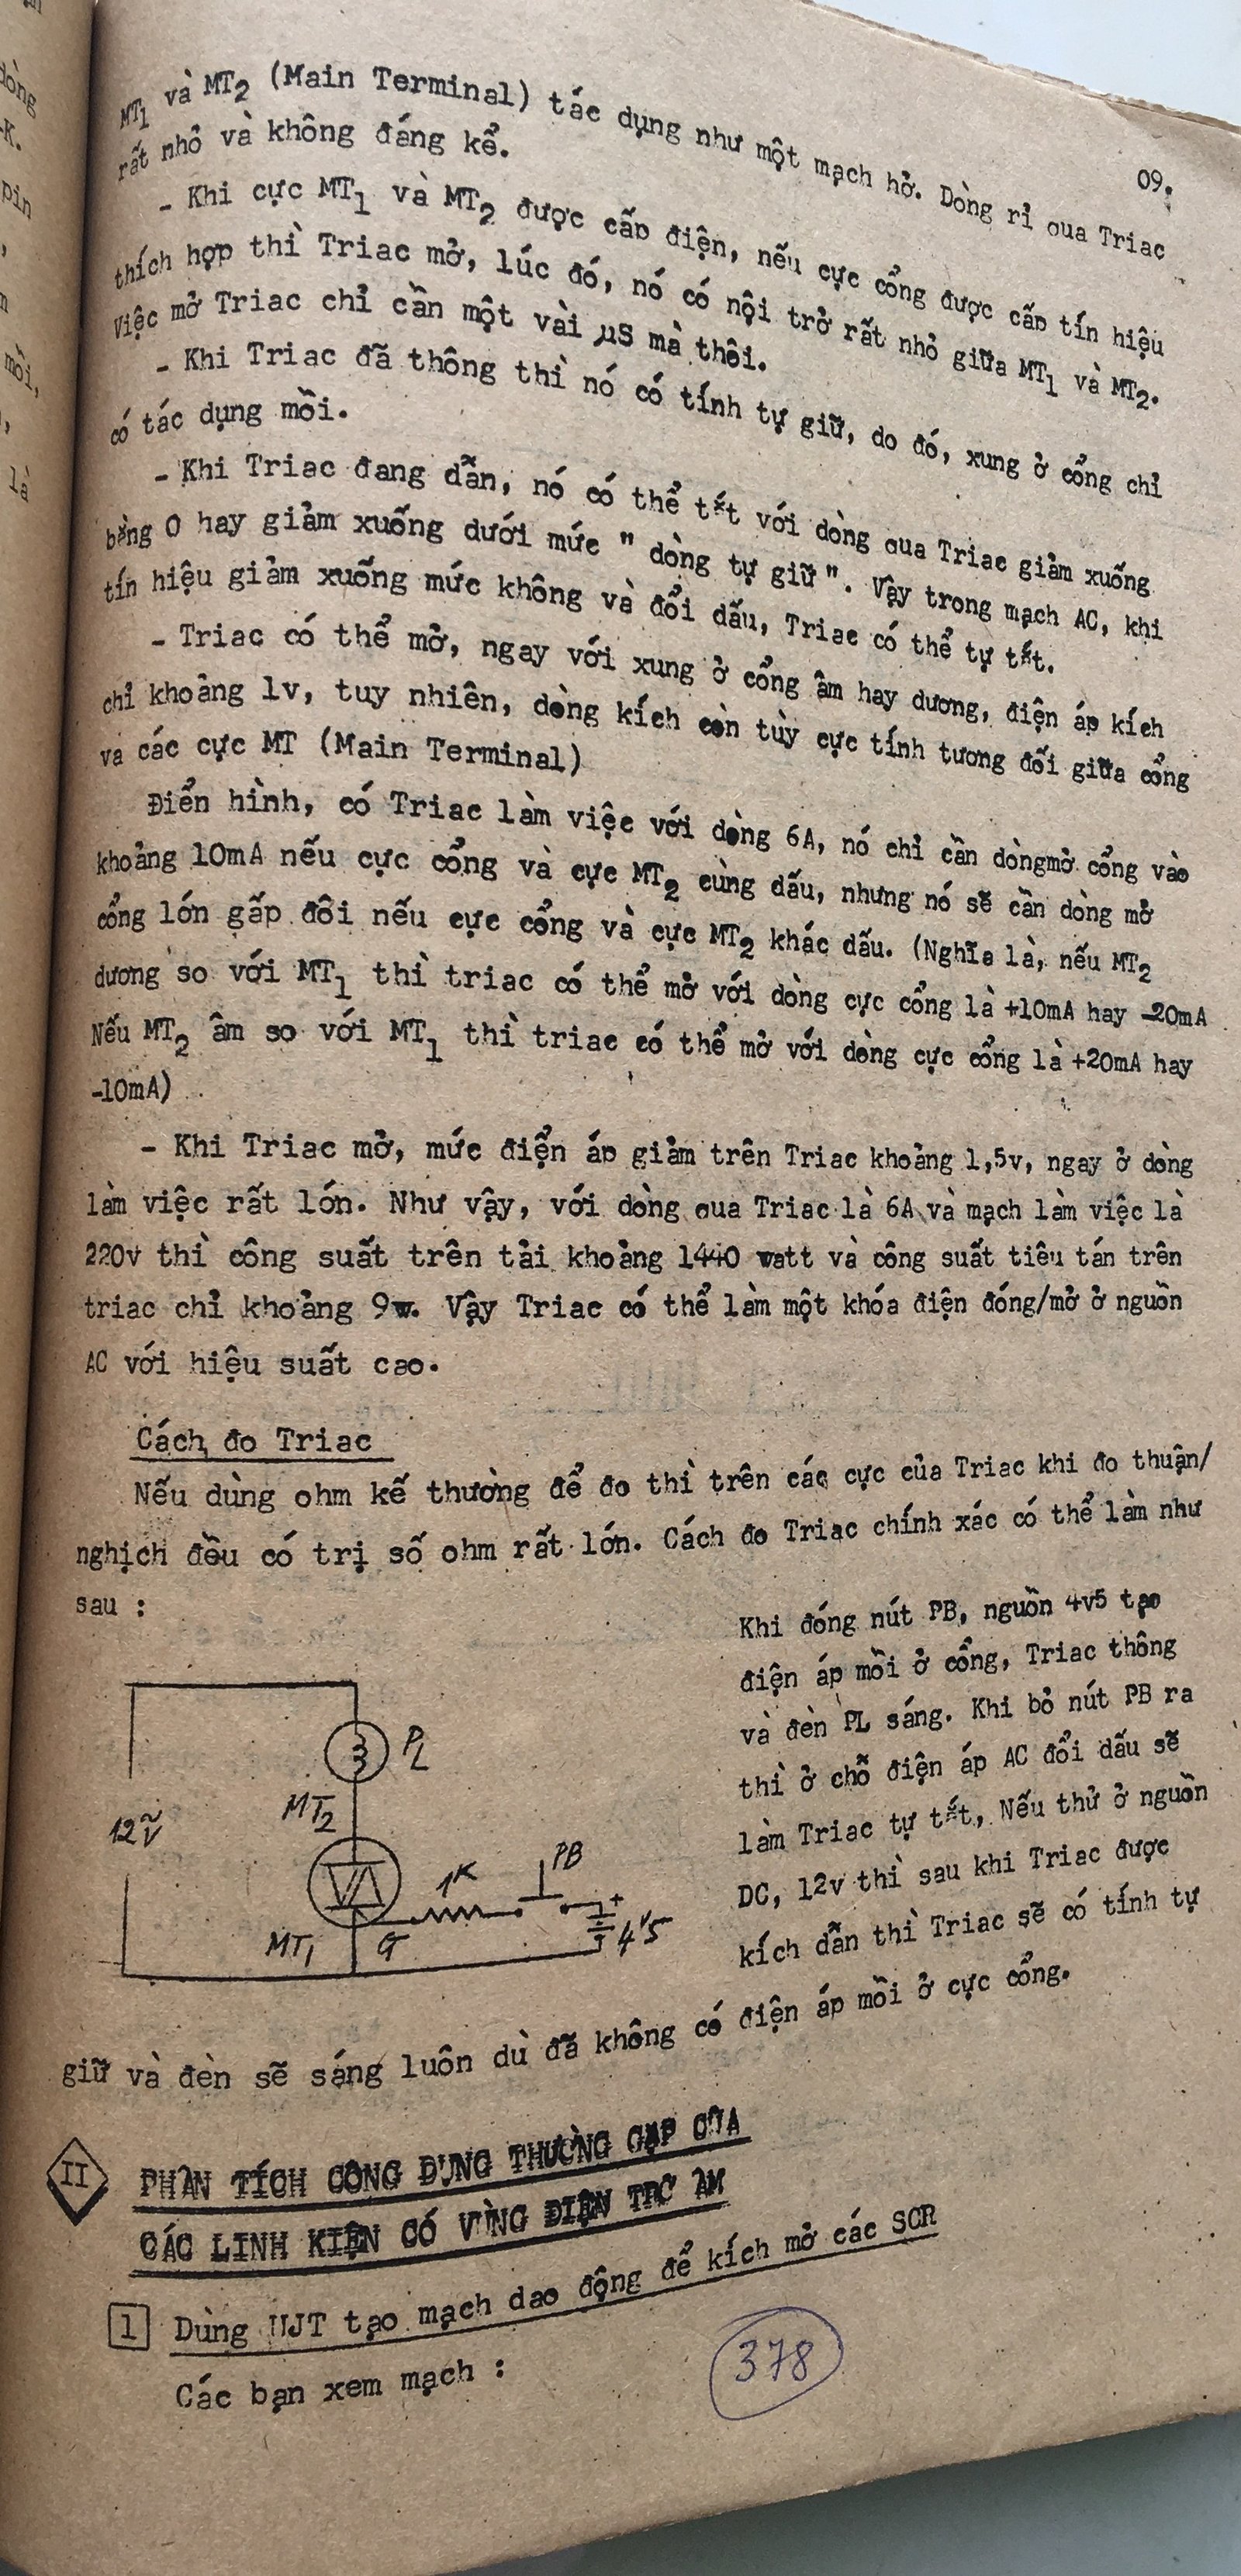 09.
MT1 và MT2 (Main Terminal) tác dụng như một mạch hở. Dòng rỉ qua Triac
rất nhỏ và không đáng kể.
- Khi cực MT1 và MT2 được cấp điện, nếu cực cổng được cấp tín hiệu
thích hợp thì Triac mở, lúc đó, nó có nội trở rất nhỏ giữa MT1 và MT2.
Việc mở Triac chỉ cần một vài µS mà thôi.
- Khi Triac đã thông thì nó có tính tự giữ, do đó, xung ở cổng chỉ
có tác dụng mồi.
- Khi Triac đang dẫn, nó có thể tắt với dòng qua Triac giảm xuống
bằng 0 hay giảm xuống dưới mức " dòng tự giữ ". Vậy trong mạch AC, khi
tín hiệu giảm xuống mức không và đổi dấu, Triac có thể tự tắt.
- Triac có thể mở, ngay với xung ở cổng âm hay dương, điện áp kích
chỉ khoảng 1v, tuy nhiên, dòng kích còn tùy cực tính tương đối giữa cổng
và các cực MT (Main Terminal)
Điển hình, có Triac làm việc với dòng 6A, nó chỉ cần dòngmở cổng vào
khoảng 10mA nếu cực cổng và cực MT2 cùng dấu, nhưng nó sẽ cần dòng mở
cổng lớn gấp đôi nếu cực cổng và cực MT2 khác dấu. (Nghĩa là, nếu MT2
dương so với MT1 thì triac có thể mở với dòng cực cổng là +10mA hay -20mA
Nếu MT2 âm so với MT1 thì triac có thể mở với dòng cực cổng là +20mA hay
-10mA)
- Khi Triac mở, mức điện áp giảm trên Triac khoảng 1,5v, ngay ở dòng
làm việc rất lớn. Như vậy, với dòng qua Triac là 6A và mạch làm việc là
220v thì công suất trên tải khoảng 1440 watt và công suất tiêu tán trên
triac chỉ khoảng 9w. Vậy Triac có thể làm một khóa điện đóng/mở ở nguồn
AC với hiệu suất cao.
Cách đo Triac
Nếu dùng ohm kế thường để đo thì trên các cực của Triac khi đo thuận/
nghịch đều có trị số ohm rất lớn. Cách đo Triac chính xác có thể làm như
sau :
Khi đóng nút PB, nguồn 4v5 tạo
điện áp mồi ở cổng, Triac thông
và đèn PL sáng. Khi bỏ nút PB ra
thì ở chỗ điện áp AC đổi dấu sẽ
làm Triac tự tắt, Nếu thử ở nguồn
DC, 12v thì sau khi Triac được
kích dẫn thì Triac sẽ có tính tự
giữ và đèn sẽ sáng luôn dù đã không có điện áp mồi ở cực cổng.
PL
MT2
12V~
1K
PB
+
4V5
MT1
G
II PHÂN TÍCH CÔNG DỤNG THƯỜNG GẶP CỦA
CÁC LINH KIỆN CÓ VÙNG ĐIỆN TRỞ ÂM
1 Dùng UJT tạo mạch dao động để kích mở các SCR
Các bạn xem mạch :
378